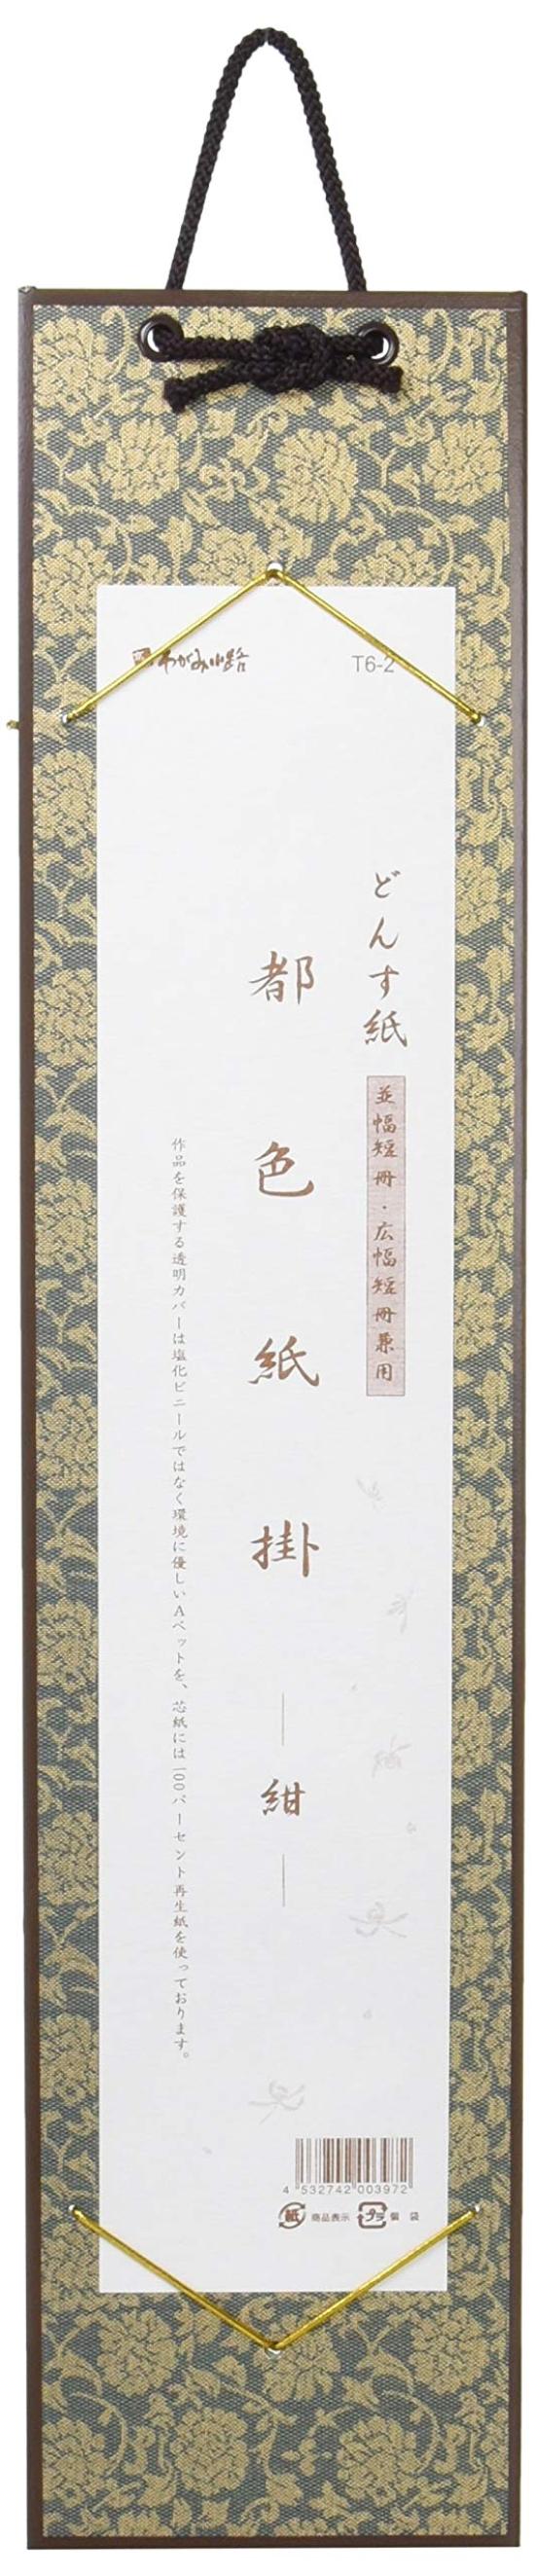 わがみ小路
T6-2
どんす紙
並幅短冊・広幅短冊兼用
都色紙掛
紺
作品を保護する透明カバーは塩化ビニールではなく環境に優しいAペットを、芯紙には100パーセント再生紙を使っております。
4 532742 003972
紙 商品表示 プラ 個 袋